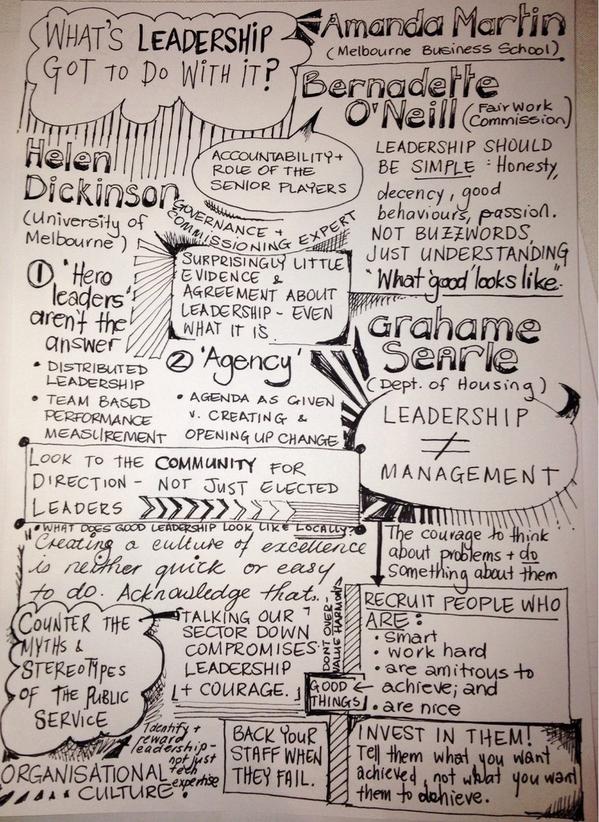 WHAT'S LEADERSHIP
GOT TO DO WITH IT?
Amanda Martin
(Melbourne Business School)
Bernadette
O'Neill (Fair Work
Commission)
ACCOUNTABILITY +
ROLE OF THE
SENIOR PLAYERS
LEADERSHIP SHOULD
BE SIMPLE: Honesty,
decency, good
behaviours, passion.
NOT BUZZWORDS,
JUST UNDERSTANDING
"What 'good' looks like."
Helen
Dickinson
(University of
Melbourne)
GOVERNANCE +
COMMISSIONING EXPERT
SURPRISINGLY LITTLE
EVIDENCE &
AGREEMENT ABOUT
LEADERSHIP - EVEN
WHAT IT IS.
1 'Hero
leaders'
aren't the
answer
• DISTRIBUTED
LEADERSHIP
• TEAM BASED
PERFORMANCE
MEASUREMENT
2 'Agency'
• AGENDA AS GIVEN
V. CREATING &
OPENING UP CHANGE
Grahame
Searle
(Dept. of Housing)
LEADERSHIP
≠
MANAGEMENT
LOOK TO THE COMMUNITY FOR
DIRECTION - NOT JUST ELECTED
LEADERS
• WHAT DOES GOOD LEADERSHIP LOOK LIKE LOCALLY?
"Creating a culture of excellence
is neither quick or easy
to do. Acknowledge that..
The courage to think
about problems + do
something about them
COUNTER THE
MYTHS &
STEREOTYPES
OF THE PUBLIC
SERVICE
TALKING OUR
SECTOR DOWN
COMPROMISES
LEADERSHIP
+ COURAGE.
DON'T OVER-
VALUE HARMONY
RECRUIT PEOPLE WHO
ARE:
• Smart
• work hard
• are amitrous to
achieve; and
• are nice
GOOD
THINGS
Identify +
reward
leadership -
not just
tech
expertise
ORGANISATIONAL
CULTURE.
BACK YOUR
STAFF WHEN
THEY FAIL.
INVEST IN THEM!
Tell them what you want
achieved, not what you want
them to dohieve.